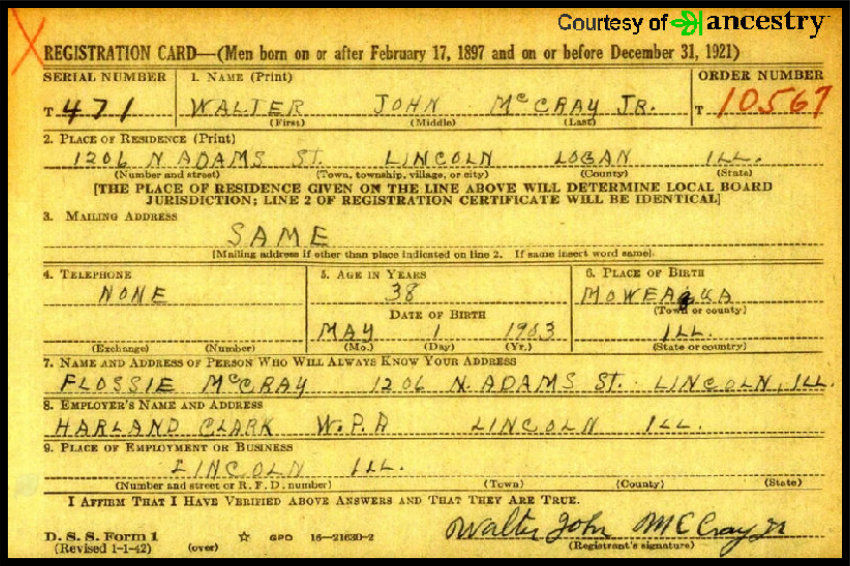 Courtesy of ancestry
REGISTRATION CARD—(Men born on or after February 17, 1897 and on or before December 31, 1921)
SERIAL NUMBER 1. NAME (Print) ORDER NUMBER
T 471 WALTER JOHN McCRAY JR. T 10567
(First) (Middle) (Last)
2. PLACE OF RESIDENCE (Print)
1206 N. ADAMS ST. LINCOLN LOGAN ILL.
(Number and street) (Town, township, village, or city) (County) (State)
[THE PLACE OF RESIDENCE GIVEN ON THE LINE ABOVE WILL DETERMINE LOCAL BOARD
JURISDICTION; LINE 2 OF REGISTRATION CERTIFICATE WILL BE IDENTICAL]
3. MAILING ADDRESS
SAME
[Mailing address if other than place indicated on line 2. If same insert word same]
4. TELEPHONE 5. AGE IN YEARS 6. PLACE OF BIRTH
NONE 38 MOWEAQUA
DATE OF BIRTH (Town or county)
MAY 1 1903 ILL.
(Exchange) (Number) (Mo.) (Day) (Yr.) (State or country)
7. NAME AND ADDRESS OF PERSON WHO WILL ALWAYS KNOW YOUR ADDRESS
FLOSSIE McCRAY 1206 N. ADAMS ST. LINCOLN, ILL.
8. EMPLOYER'S NAME AND ADDRESS
HARLAND CLARK W.P.A LINCOLN ILL.
9. PLACE OF EMPLOYMENT OR BUSINESS
LINCOLN ILL.
(Number and street or R. F. D. number) (Town) (County) (State)
I AFFIRM THAT I HAVE VERIFIED ABOVE ANSWERS AND THAT THEY ARE TRUE.
D. S. S. Form 1 Walter John McCray Jr
(Revised 1-1-42) (over) GPO 16—21630-2 (Registrant's signature)